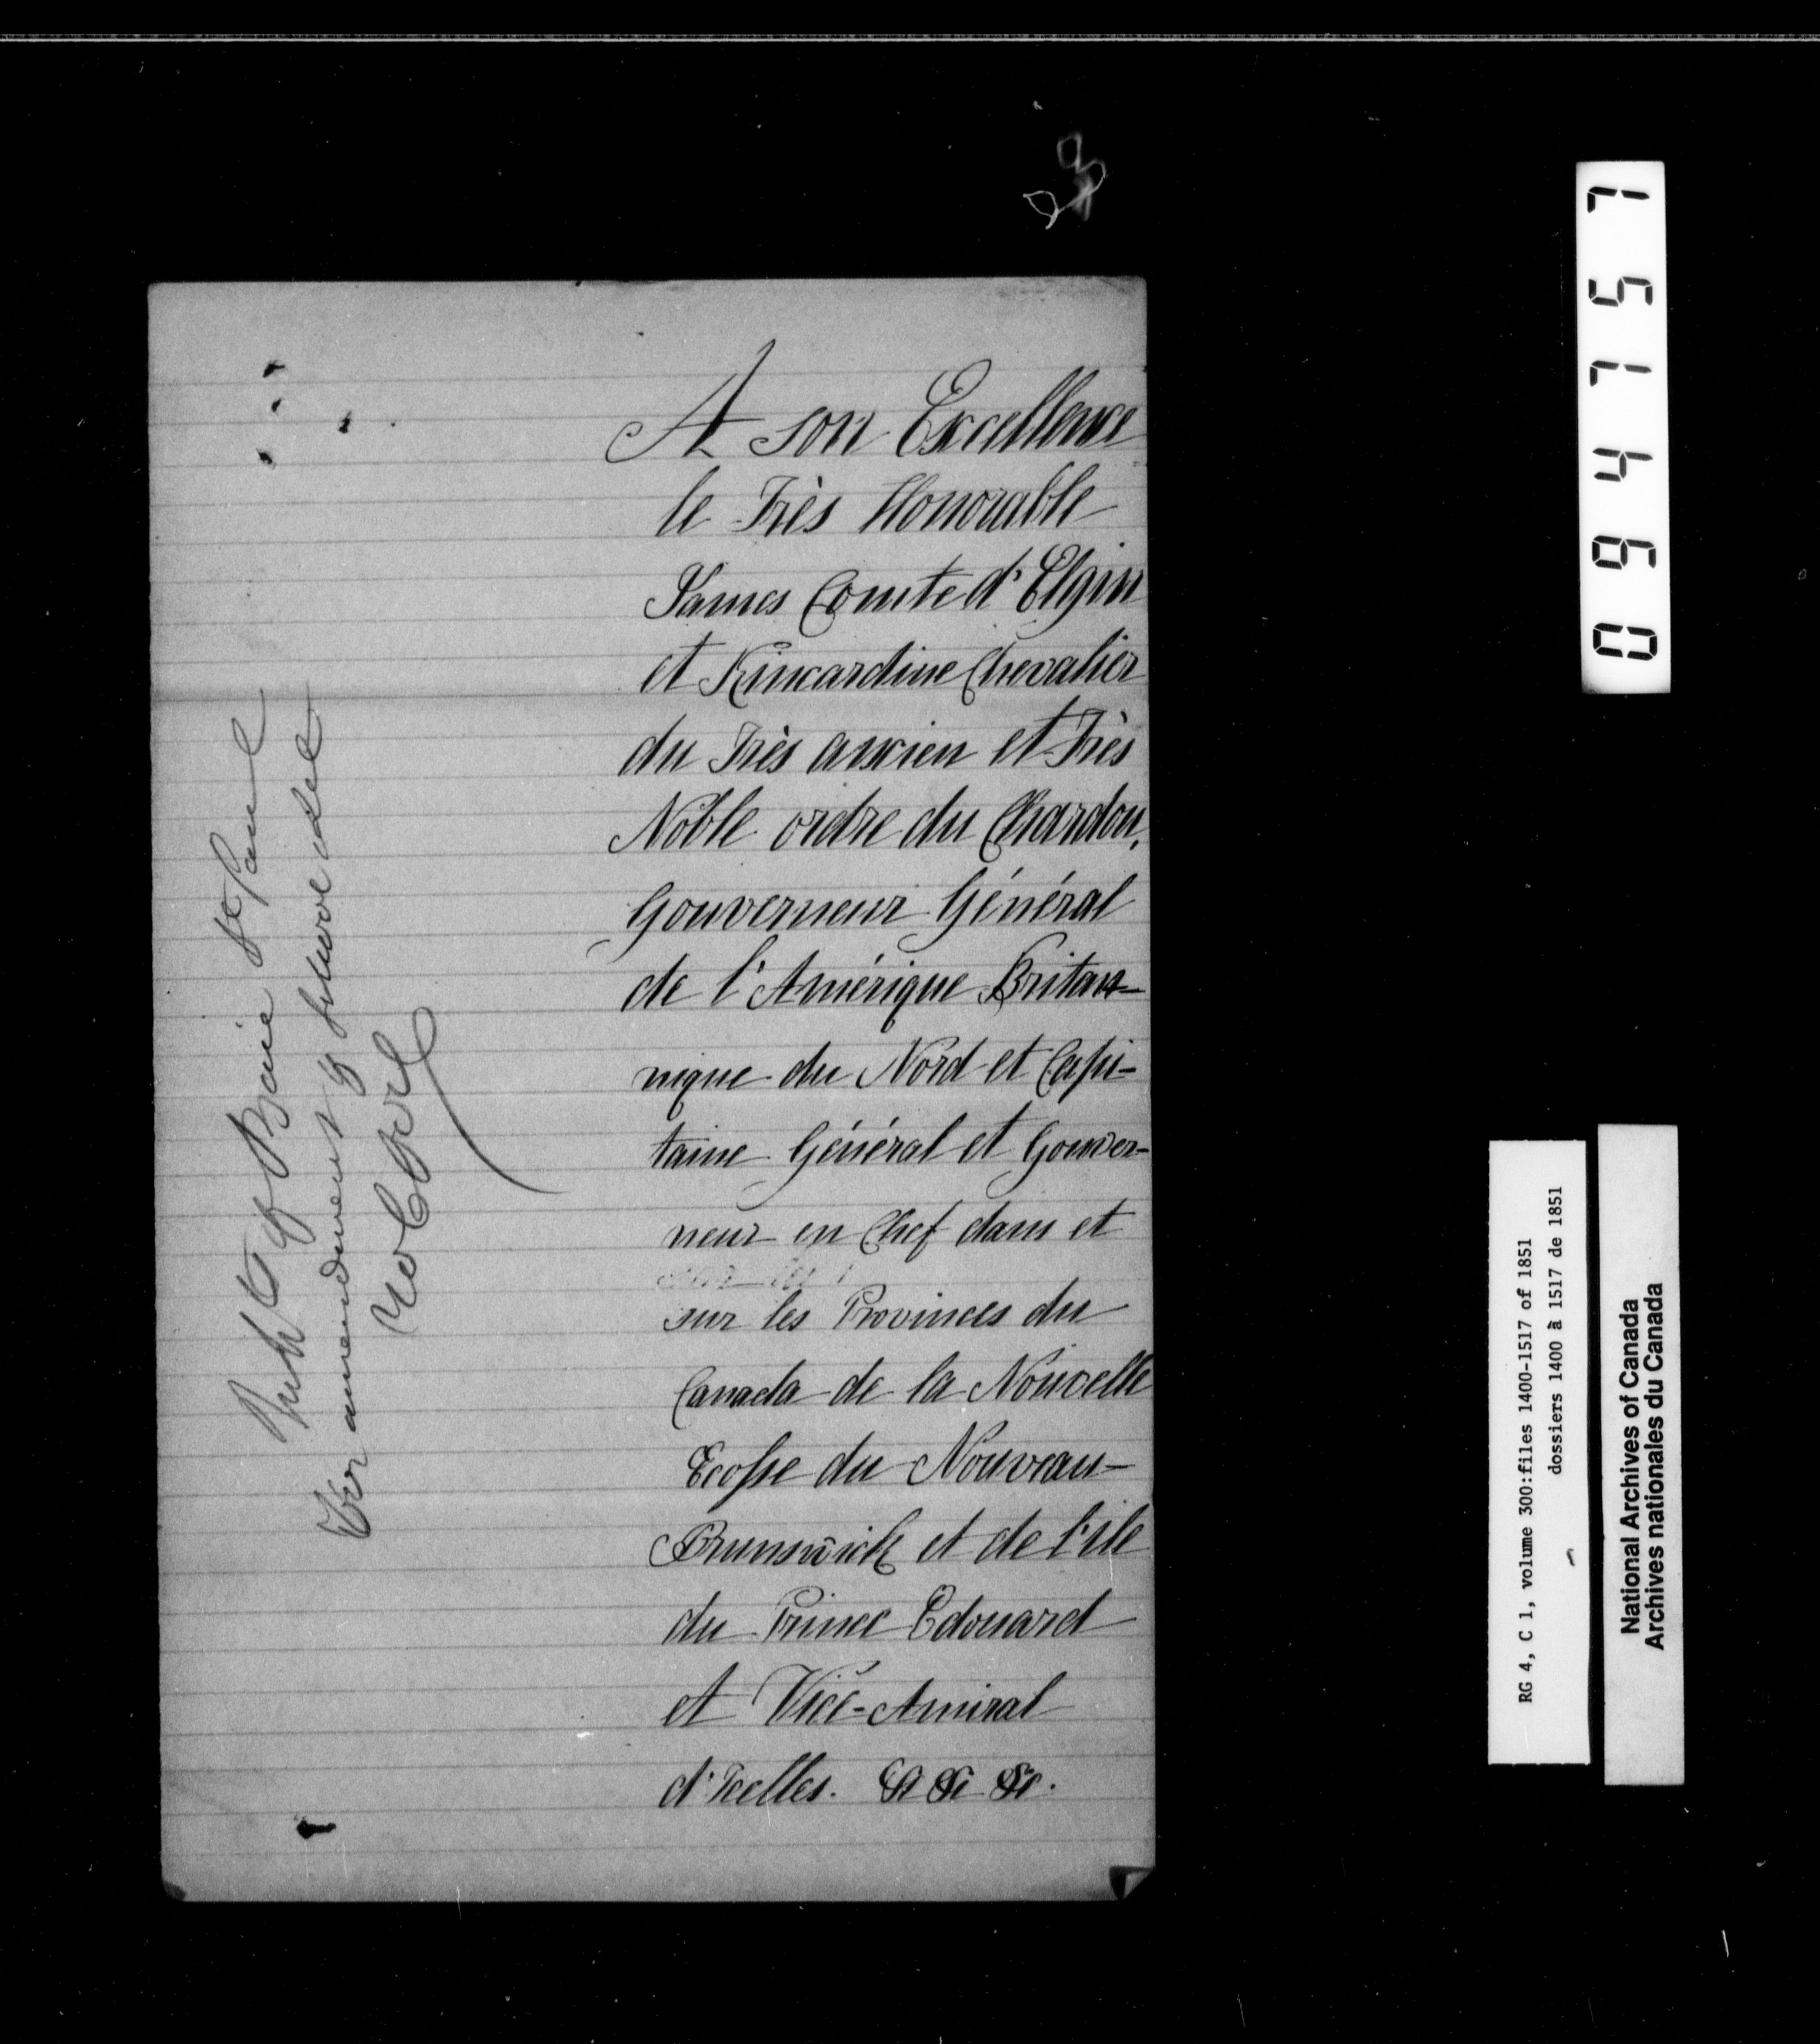 A son Excellence
le Très Honorable
James Comte d'Elgin
et Kincardine Chevalier
du Très ancien et Très
Noble ordre du Chardon,
Gouverneur Général
de l'Amérique Britan-
nique du Nord et Capi-
taine Général et Gouver-
neur en Chef dans et
sur les Provinces du
Canada de la Nouvelle
Ecosse du Nouveau-
Brunswick et de l'ile
du Prince Edouard
et Vice-Amiral
d'Icelles. &c &c &c.
of Baie St Paul
for amendment of
094757
RG 4, C 1, volume 300:files 1400-1517 of 1851
dossiers 1400 à 1517 de 1851
National Archives of Canada
Archives nationales du Canada